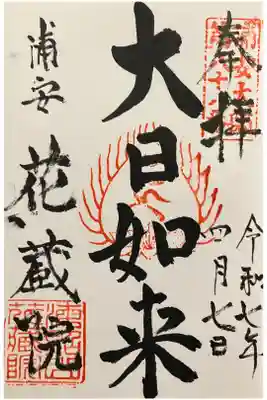 奉拝
令和七年
四月七日
大日如来
浦安
花蔵院